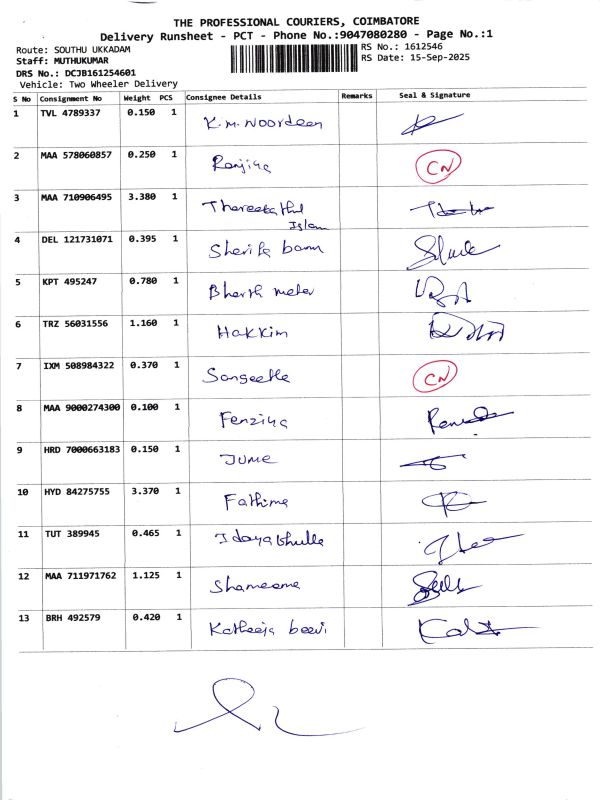 THE PROFESSIONAL COURIERS, COIMBATORE
Delivery Runsheet - PCT - Phone No.:9047080280 - Page No.:1
Route: SOUTHU UKKADAM
RS No.: 1612546
Staff: MUTHUKUMAR
RS Date: 15-Sep-2025
DRS No.: DCJB161254601
Vehicle: Two Wheeler Delivery
S No Consignment No Weight PCS Consignee Details Remarks Seal & Signature
1 TVL 4789337 0.150 1 K.M. Noordeen
2 MAA 578060857 0.250 1 Ranjina CN
3 MAA 710906495 3.380 1
Islam
4 DEL 121731071 0.395 1 Sherifa banu
5 KPT 495247 0.780 1
6 TRZ 56031556 1.160 1 Hakkim
7 IXM 508984322 0.370 1 Sangeetha CN
8 MAA 9000274300 0.100 1 Fenzina
9 HRD 7000663183 0.150 1
10 HYD 84275755 3.370 1 Fathima
11 TUT 389945 0.465 1
12 MAA 711971762 1.125 1 Shameema
13 BRH 492579 0.420 1 Katheeja beevi